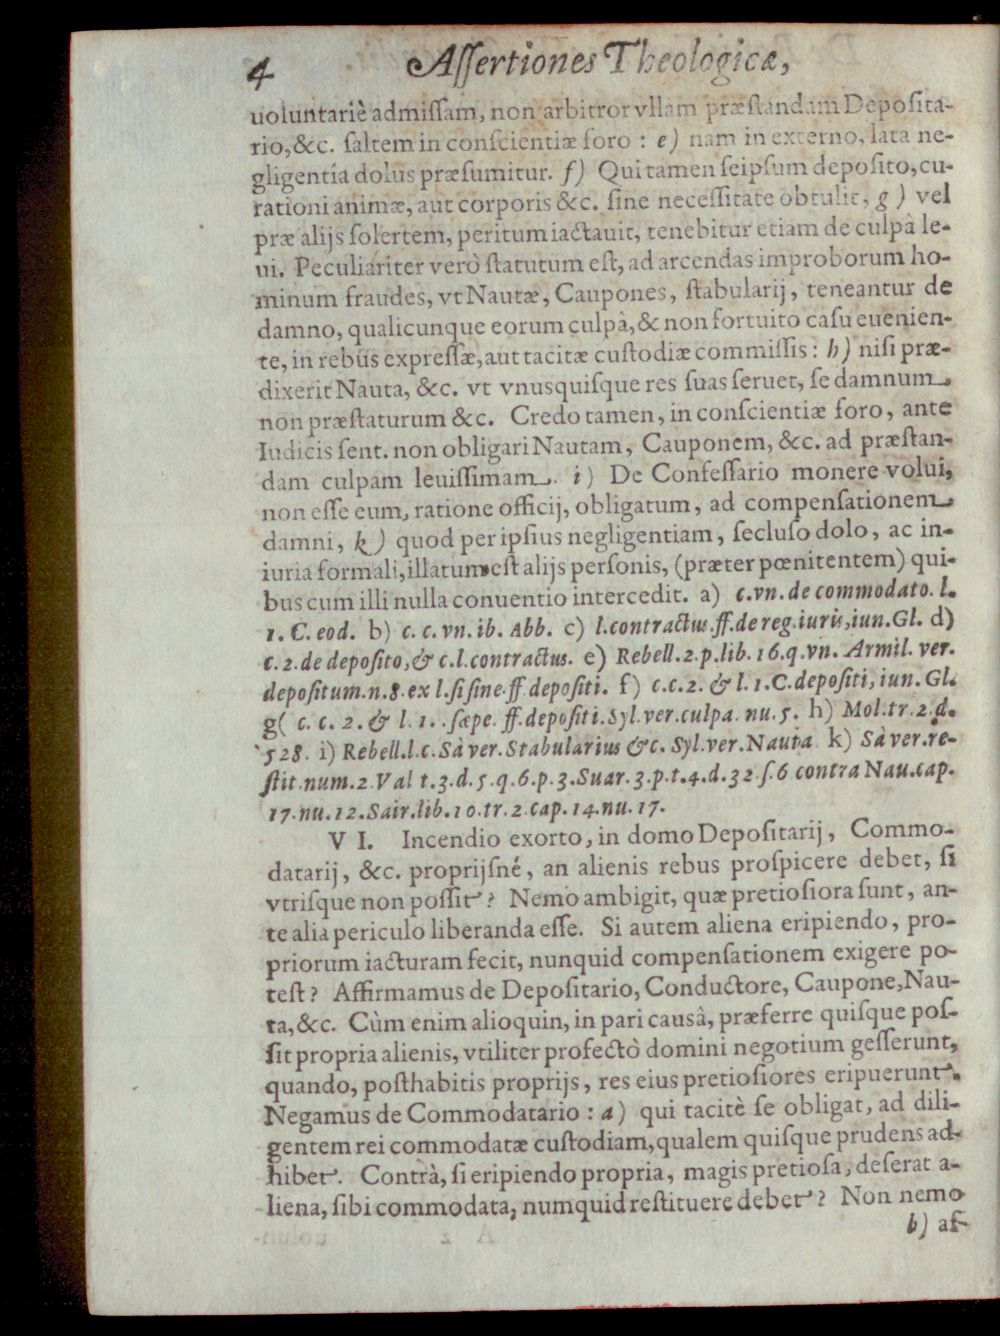 4 Aſſertiones Theologicæ,
uoluntariè admiſſam, non arbitror vllam præſtandam Depoſita-
rio, &c. ſaltem in conſcientiæ foro : e) nam in externo, lata ne-
gligentiâ dolus præſumitur. f) Qui tamen ſeipſum depoſito, cu-
rationi animæ, aut corporis &c. ſine neceſſitate obtulit, g) vel
præ alijs ſolertem, peritum iactauit, tenebitur etiam de culpâ le-
ui. Peculiariter verò ſtatutum eſt, ad arcendas improborum ho-
minum fraudes, vt Nautæ, Caupones, ſtabularij, teneantur de
damno, qualicunque eorum culpâ, & non fortuito caſu euenien-
te, in rebus expreſſæ, aut tacitæ cuſtodiæ commiſſis : h) niſi præ-
dixerit Nauta, &c. vt vnusquiſque res ſuas ſeruet, ſe damnum
non præſtaturum &c. Credo tamen, in conſcientiæ foro, ante
Iudicis ſent. non obligari Nautam, Cauponem, &c. ad præſtan-
dam culpam leuiſſimam. i) De Confeſſario monere volui,
non eſſe eum, ratione officij, obligatum, ad compenſationem
damni, k) quod per ipſius negligentiam, ſecluſo dolo, ac in-
iuria formali, illatum eſt alijs perſonis, (præter pœnitentem) qui-
bus cum illi nulla conuentio intercedit. a) c.vn. de commodato. l.
1. C. eod. b) c. c. vn. ib. Abb. c) l.contractus.ff.de reg.iuris, iun.Gl. d)
c.2. de depoſito, & c.l.contractus. e) Rebell.2.p.lib.16.q.vn. Armil. ver.
depoſitum.n.8.ex l.ſi ſine.ff.depoſiti. f) c.c.2. & l.1.C.depoſiti, iun.Gl.
g( c. c. 2. & l. 1. . ſæpe. ff.depoſiti.Syl.ver.culpa. nu.5. h) Mol.tr.2.d.
528. i) Rebell.l.c.Sà ver.Stabularius &c. Syl.ver.Nauta k) Sà ver.re-
ſtit.num.2 Val t.3.d.5.q.6.p.3.Suar.3.p.t.4.d.32.ſ.6 contra Nau.cap.
17.nu.12.Sair.lib.10.tr.2.cap.14.nu.17.
VI. Incendio exorto, in domo Depoſitarij, Commo-
datarij, &c. proprijſné, an alienis rebus proſpicere debet, ſi
vtriſque non poſſit? Nemo ambigit, quæ pretioſiora ſunt, an-
te alia periculo liberanda eſſe. Si autem aliena eripiendo, pro-
priorum iacturam fecit, nunquid compenſationem exigere po-
teſt? Affirmamus de Depoſitario, Conductore, Caupone, Nau-
ta, &c. Cùm enim alioquin, in pari causâ, præferre quiſque poſ-
ſit propria alienis, vtiliter profectò domini negotium geſſerunt,
quando, poſthabitis proprijs, res eius pretioſiores eripuerunt.
Negamus de Commodatario : a) qui tacitè ſe obligat, ad dili-
gentem rei commodatæ cuſtodiam, qualem quiſque prudens ad-
hibet. Contrà, ſi eripiendo propria, magis pretioſa, deſerat a-
liena, ſibi commodata, numquid reſtituere debet? Non nemo
b) aſ-